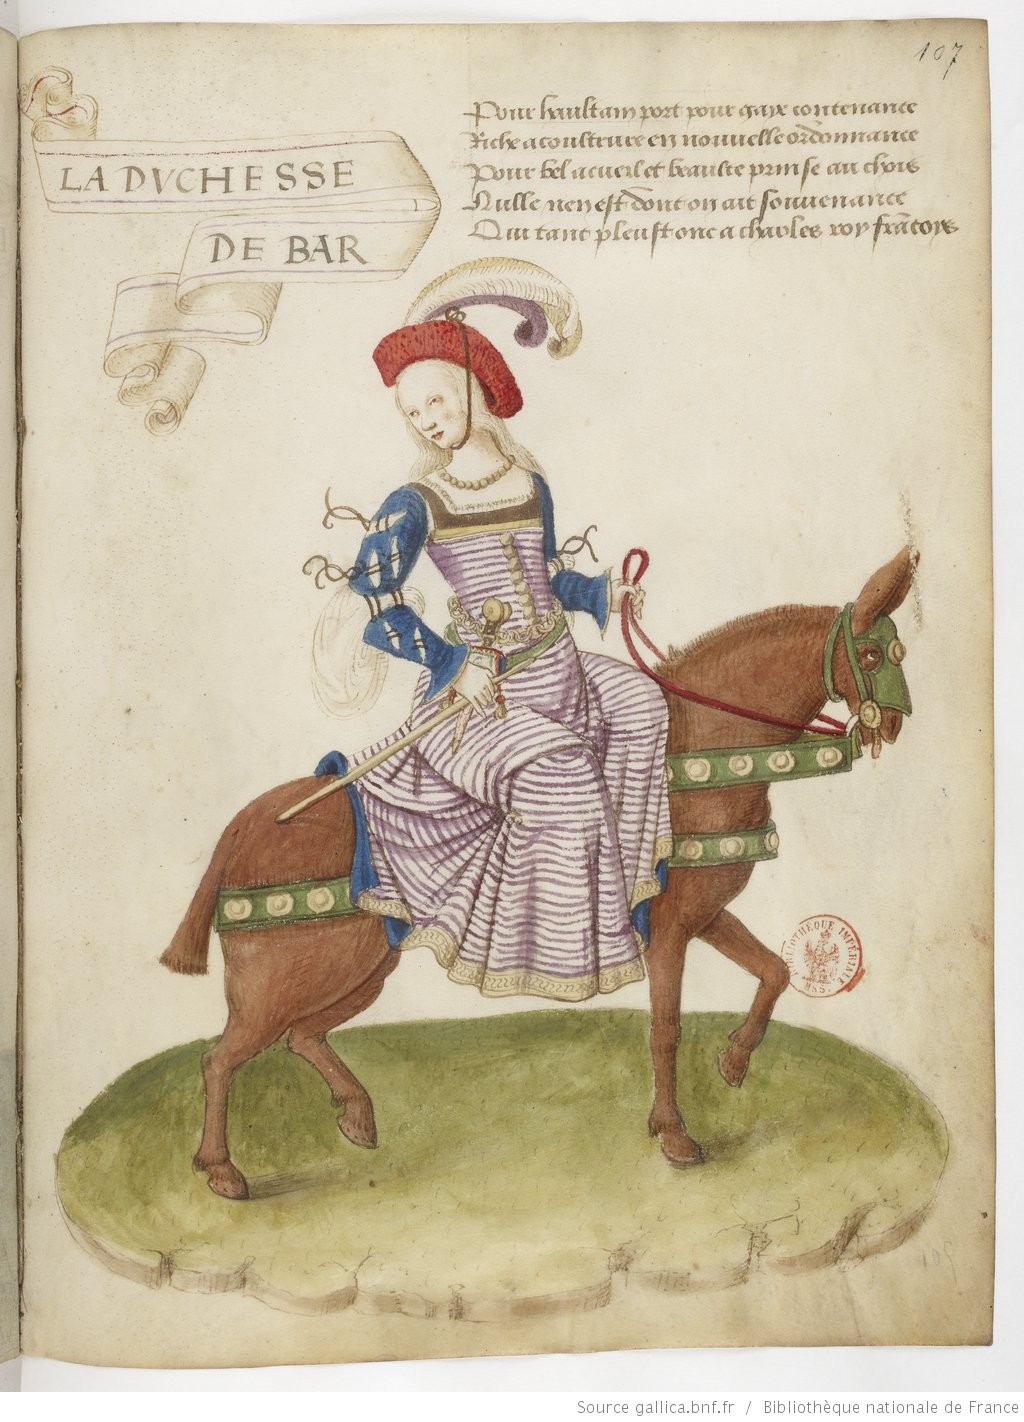 107
LA DVCHESSE
DE BAR
Pour haultain port pour gaye contenance
Riche acoustreure en nouuelle ordonnance
Pour bel acueil et beaulte prinse au chois
Nulle nen est dont on ait souuenance
Qui tant pleust onc a charles roy francoys
BIBLIOTHÈQUE IMPÉRIALE
MSS.
Source gallica.bnf.fr / Bibliothèque nationale de France